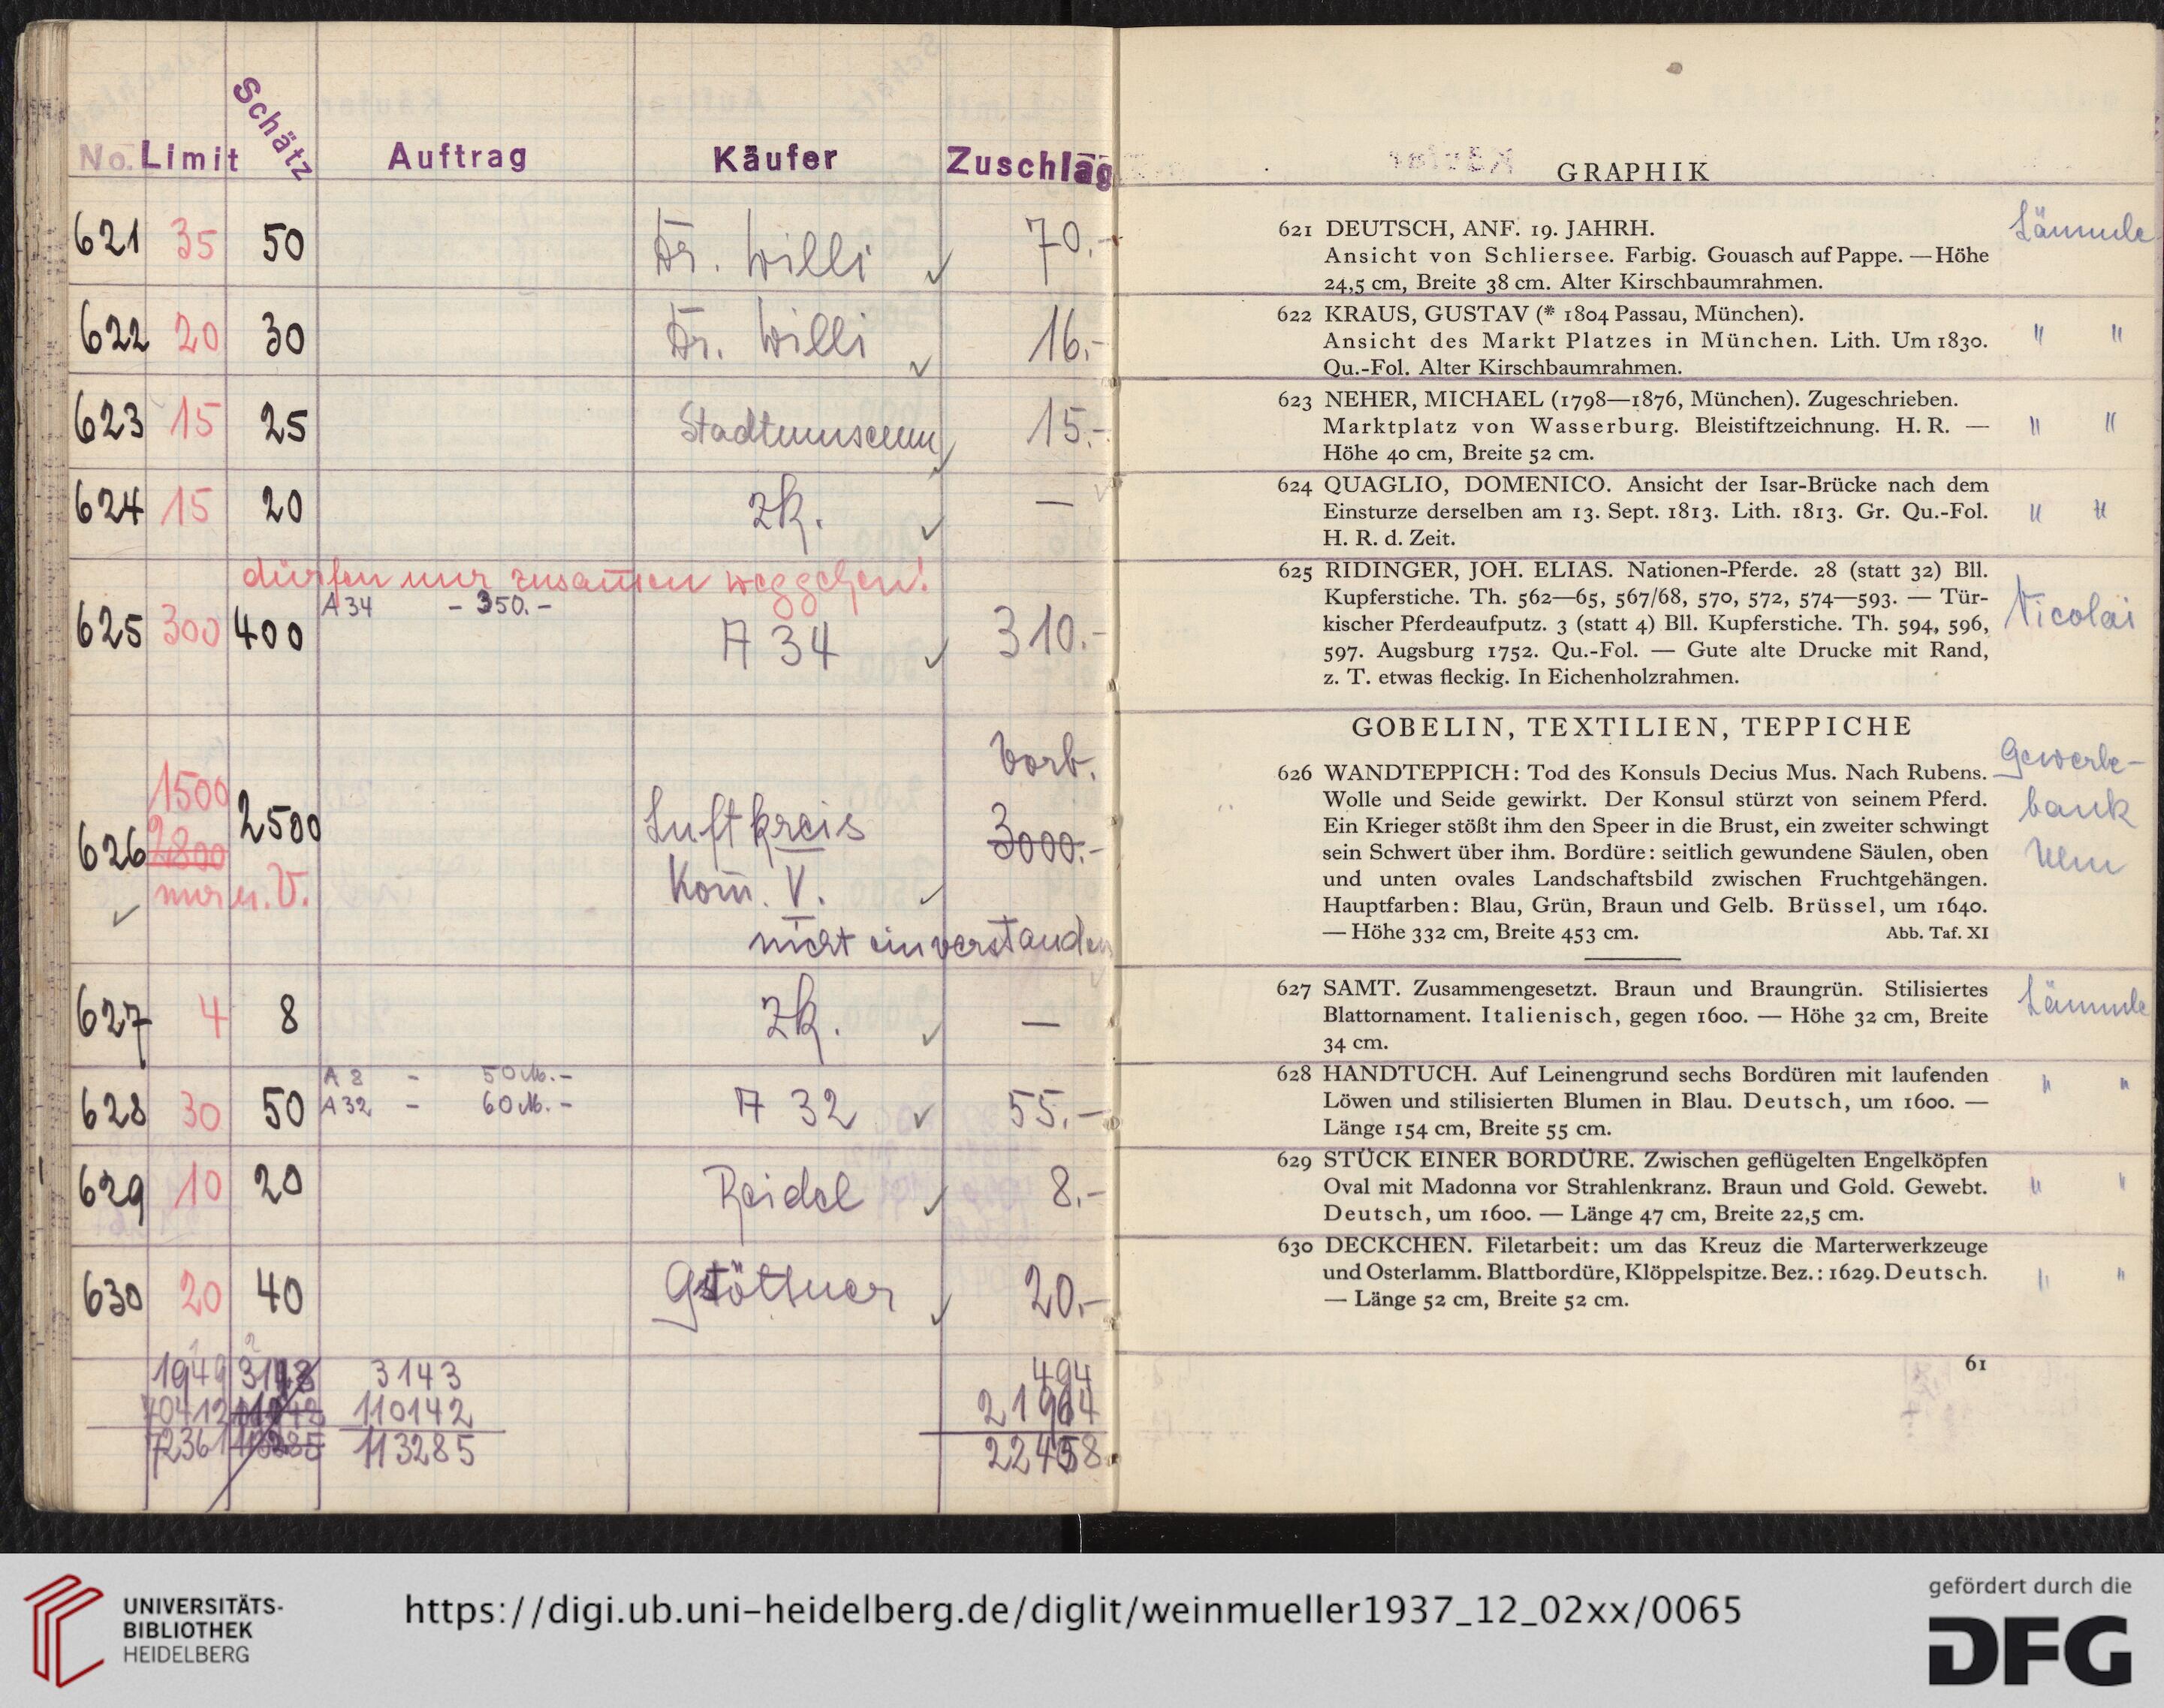 No. Limit Schätz Auftrag Käufer Zuschlag
621 35 50 Dr. Willi 70.-
622 20 30 Dr. Willi 16.-
623 15 25 Stadtmuseum 15.-
624 15 20 zk. —
dürfen nur zusam̄en weggehen!
A 34 - 350.-
625 300 400 A 34 310.-
vorb.
1500
626 2800 2500 Luftkreis 3000.-
nur u. V. Kom̄. V.
nicht einverstanden
627 4 8 zk. —
A 8 - 50 M.-
628 30 50 A 32 - 60 M.- A 32 55.-
629 10 20 Reidel 8.-
630 20 40 Gstöttner 20.-
1949 3143 3143 494
70412 110142 110142 21964
72361 113285 113285 22458
GRAPHIK
621 DEUTSCH, ANF. 19. JAHRH. Lämmle
Ansicht von Schliersee. Farbig. Gouasch auf Pappe. — Höhe
24,5 cm, Breite 38 cm. Alter Kirschbaumrahmen.
622 KRAUS, GUSTAV (* 1804 Passau, München).
Ansicht des Markt Platzes in München. Lith. Um 1830. " "
Qu.-Fol. Alter Kirschbaumrahmen.
623 NEHER, MICHAEL (1798—1876, München). Zugeschrieben.
Marktplatz von Wasserburg. Bleistiftzeichnung. H. R. — " "
Höhe 40 cm, Breite 52 cm.
624 QUAGLIO, DOMENICO. Ansicht der Isar-Brücke nach dem
Einsturze derselben am 13. Sept. 1813. Lith. 1813. Gr. Qu.-Fol. " "
H. R. d. Zeit.
625 RIDINGER, JOH. ELIAS. Nationen-Pferde. 28 (statt 32) Bll.
Kupferstiche. Th. 562—65, 567/68, 570, 572, 574—593. — Tür- Nicolai
kischer Pferdeaufputz. 3 (statt 4) Bll. Kupferstiche. Th. 594, 596,
597. Augsburg 1752. Qu.-Fol. — Gute alte Drucke mit Rand,
z. T. etwas fleckig. In Eichenholzrahmen.
GOBELIN, TEXTILIEN, TEPPICHE
626 WANDTEPPICH: Tod des Konsuls Decius Mus. Nach Rubens. Gewerbe-
Wolle und Seide gewirkt. Der Konsul stürzt von seinem Pferd. bank
Ein Krieger stößt ihm den Speer in die Brust, ein zweiter schwingt
sein Schwert über ihm. Bordüre: seitlich gewundene Säulen, oben Ulm
und unten ovales Landschaftsbild zwischen Fruchtgehängen.
Hauptfarben: Blau, Grün, Braun und Gelb. Brüssel, um 1640.
— Höhe 332 cm, Breite 453 cm. Abb. Taf. XI
627 SAMT. Zusammengesetzt. Braun und Braungrün. Stilisiertes Lämmle
Blattornament. Italienisch, gegen 1600. — Höhe 32 cm, Breite
34 cm.
628 HANDTUCH. Auf Leinengrund sechs Bordüren mit laufenden " "
Löwen und stilisierten Blumen in Blau. Deutsch, um 1600. —
Länge 154 cm, Breite 55 cm.
629 STÜCK EINER BORDÜRE. Zwischen geflügelten Engelköpfen
Oval mit Madonna vor Strahlenkranz. Braun und Gold. Gewebt. " "
Deutsch, um 1600. — Länge 47 cm, Breite 22,5 cm.
630 DECKCHEN. Filetarbeit: um das Kreuz die Marterwerkzeuge
und Osterlamm. Blattbordüre, Klöppelspitze. Bez.: 1629. Deutsch. " "
— Länge 52 cm, Breite 52 cm.
61
UNIVERSITÄTS-
BIBLIOTHEK
HEIDELBERG
https://digi.ub.uni-heidelberg.de/diglit/weinmueller1937_12_02xx/0065
gefördert durch die
DFG